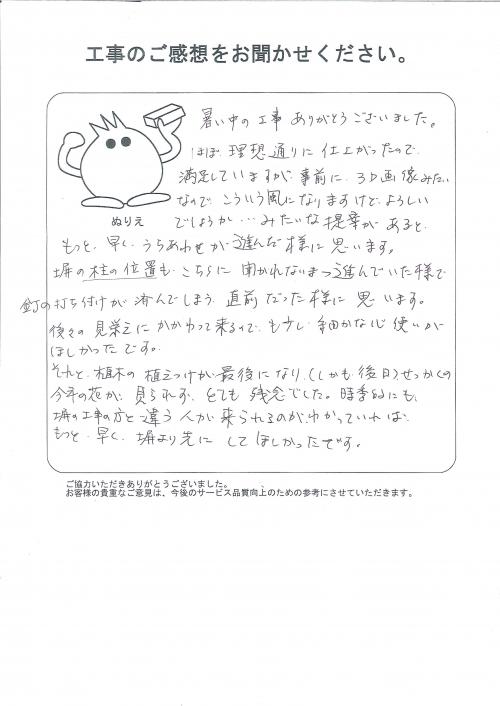 工事のご感想をお聞かせください。
暑い中の工事 ありがとうございました。
ほぼ 理想通りに 仕上がったので
満足していますが、事前に 3D画像みたい
なので こういう風になりますけど、よろしい
でしょうか…みたいな提案が あると、
ぬりえ
もっと、早く、うちあわせが進んだ様に思います。
塀の柱の位置も こちらに 聞かれないまま進んでいた様で
釘の打ち付けが 済んでしまう 直前だった様に 思います。
後々の 見栄えにかかわって来るので、もう少し 細かな心使いが
ほしかったです。
それと、植木の 植えつけが最後になり、(しかも 後日)せっかくの
今年の花が 見られず、とても 残念でした。時季的にも、
塀の工事の方と違う人が来られるのがわかっていれば、
もっと、早く、塀より先に してほしかったです。
ご協力いただきありがとうございました。
お客様の貴重なご意見は、今後のサービス品質向上のための参考にさせていただきます。